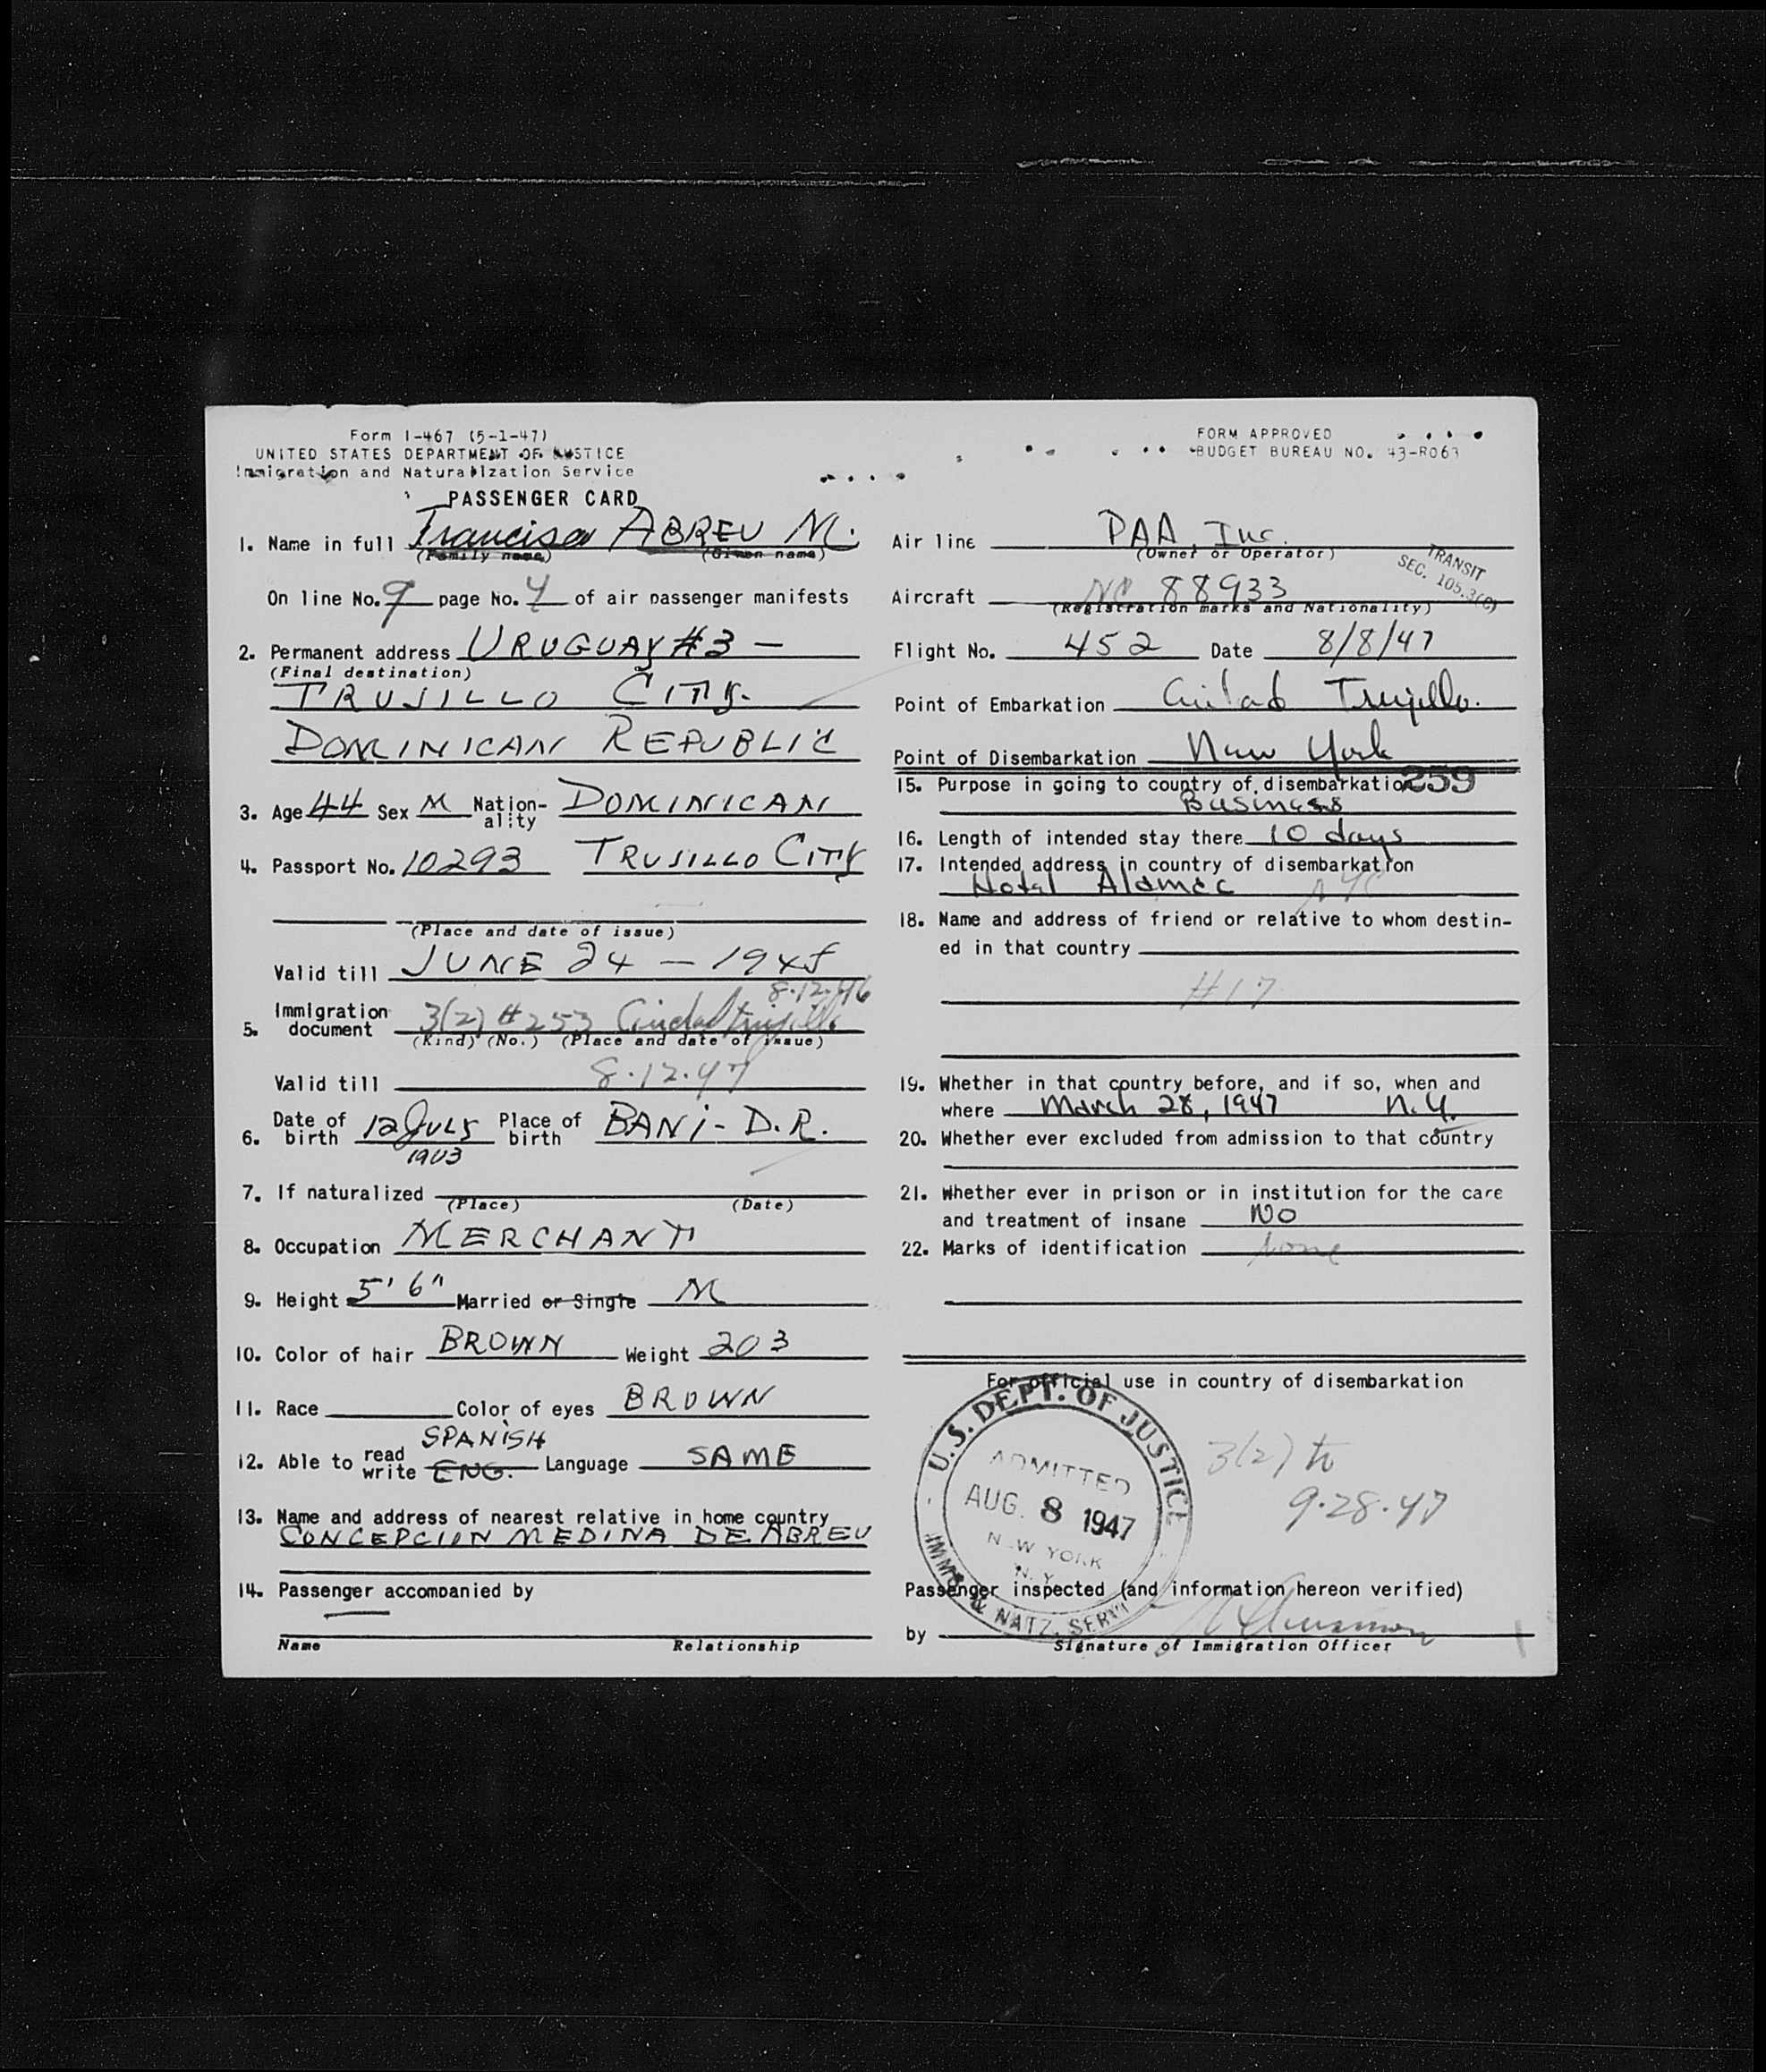 Form I-467 (5-1-47)
UNITED STATES DEPARTMENT OF JUSTICE
Immigration and Naturalization Service
PASSENGER CARD
1. Name in full Francisco ABREU M.
(Family name) (Given name)
On line No. 9 page No. 4 of air passenger manifests
2. Permanent address URUGUAY #3 —
(Final destination)
TRUJILLO CITY.
DOMINICAN REPUBLIC
3. Age 44 Sex M Nation-ality DOMINICAN
4. Passport No. 10293 TRUJILLO CITY
(Place and date of issue)
Valid till JUNE 24 — 194
8.12.46
5. Immigration document 3(2) #253 Ciudad Trujillo
(Kind) (No.) (Place and date of issue)
Valid till 8.12.47
6. Date of birth 12 JULY 1903 Place of birth BANI - D.R.
7. If naturalized
(Place) (Date)
8. Occupation MERCHANT
9. Height 5' 6" Married or Single M
10. Color of hair BROWN Weight 203
11. Race Color of eyes BROWN
SPANISH
12. Able to read write ENG. Language SAME
13. Name and address of nearest relative in home country
CONCEPCION MEDINA DE ABREU
14. Passenger accompanied by
Name Relationship
FORM APPROVED
BUDGET BUREAU NO. 43-R063
Air line PAA, Inc.
(Owner or Operator)
TRANSIT
SEC. 105.3(C)
Aircraft NC 88933
(Registration marks and Nationality)
Flight No. 452 Date 8/8/47
Point of Embarkation Ciudad Trujillo.
Point of Disembarkation New York
15. Purpose in going to country of disembarkation 259
Business
16. Length of intended stay there 10 days
17. Intended address in country of disembarkation
Hotel Alamac NYC
18. Name and address of friend or relative to whom destin-
ed in that country
#17
19. Whether in that country before, and if so, when and
where March 28, 1947 N.Y.
20. Whether ever excluded from admission to that country
21. Whether ever in prison or in institution for the care
and treatment of insane NO
22. Marks of identification None
For official use in country of disembarkation
U.S. DEPT. OF JUSTICE
ADMITTED
AUG. 8 1947
NEW YORK
N.Y.
IMMIG & NATZ. SERV
3(2) to
9.28.47
Passenger inspected (and information hereon verified)
by
Signature of Immigration Officer